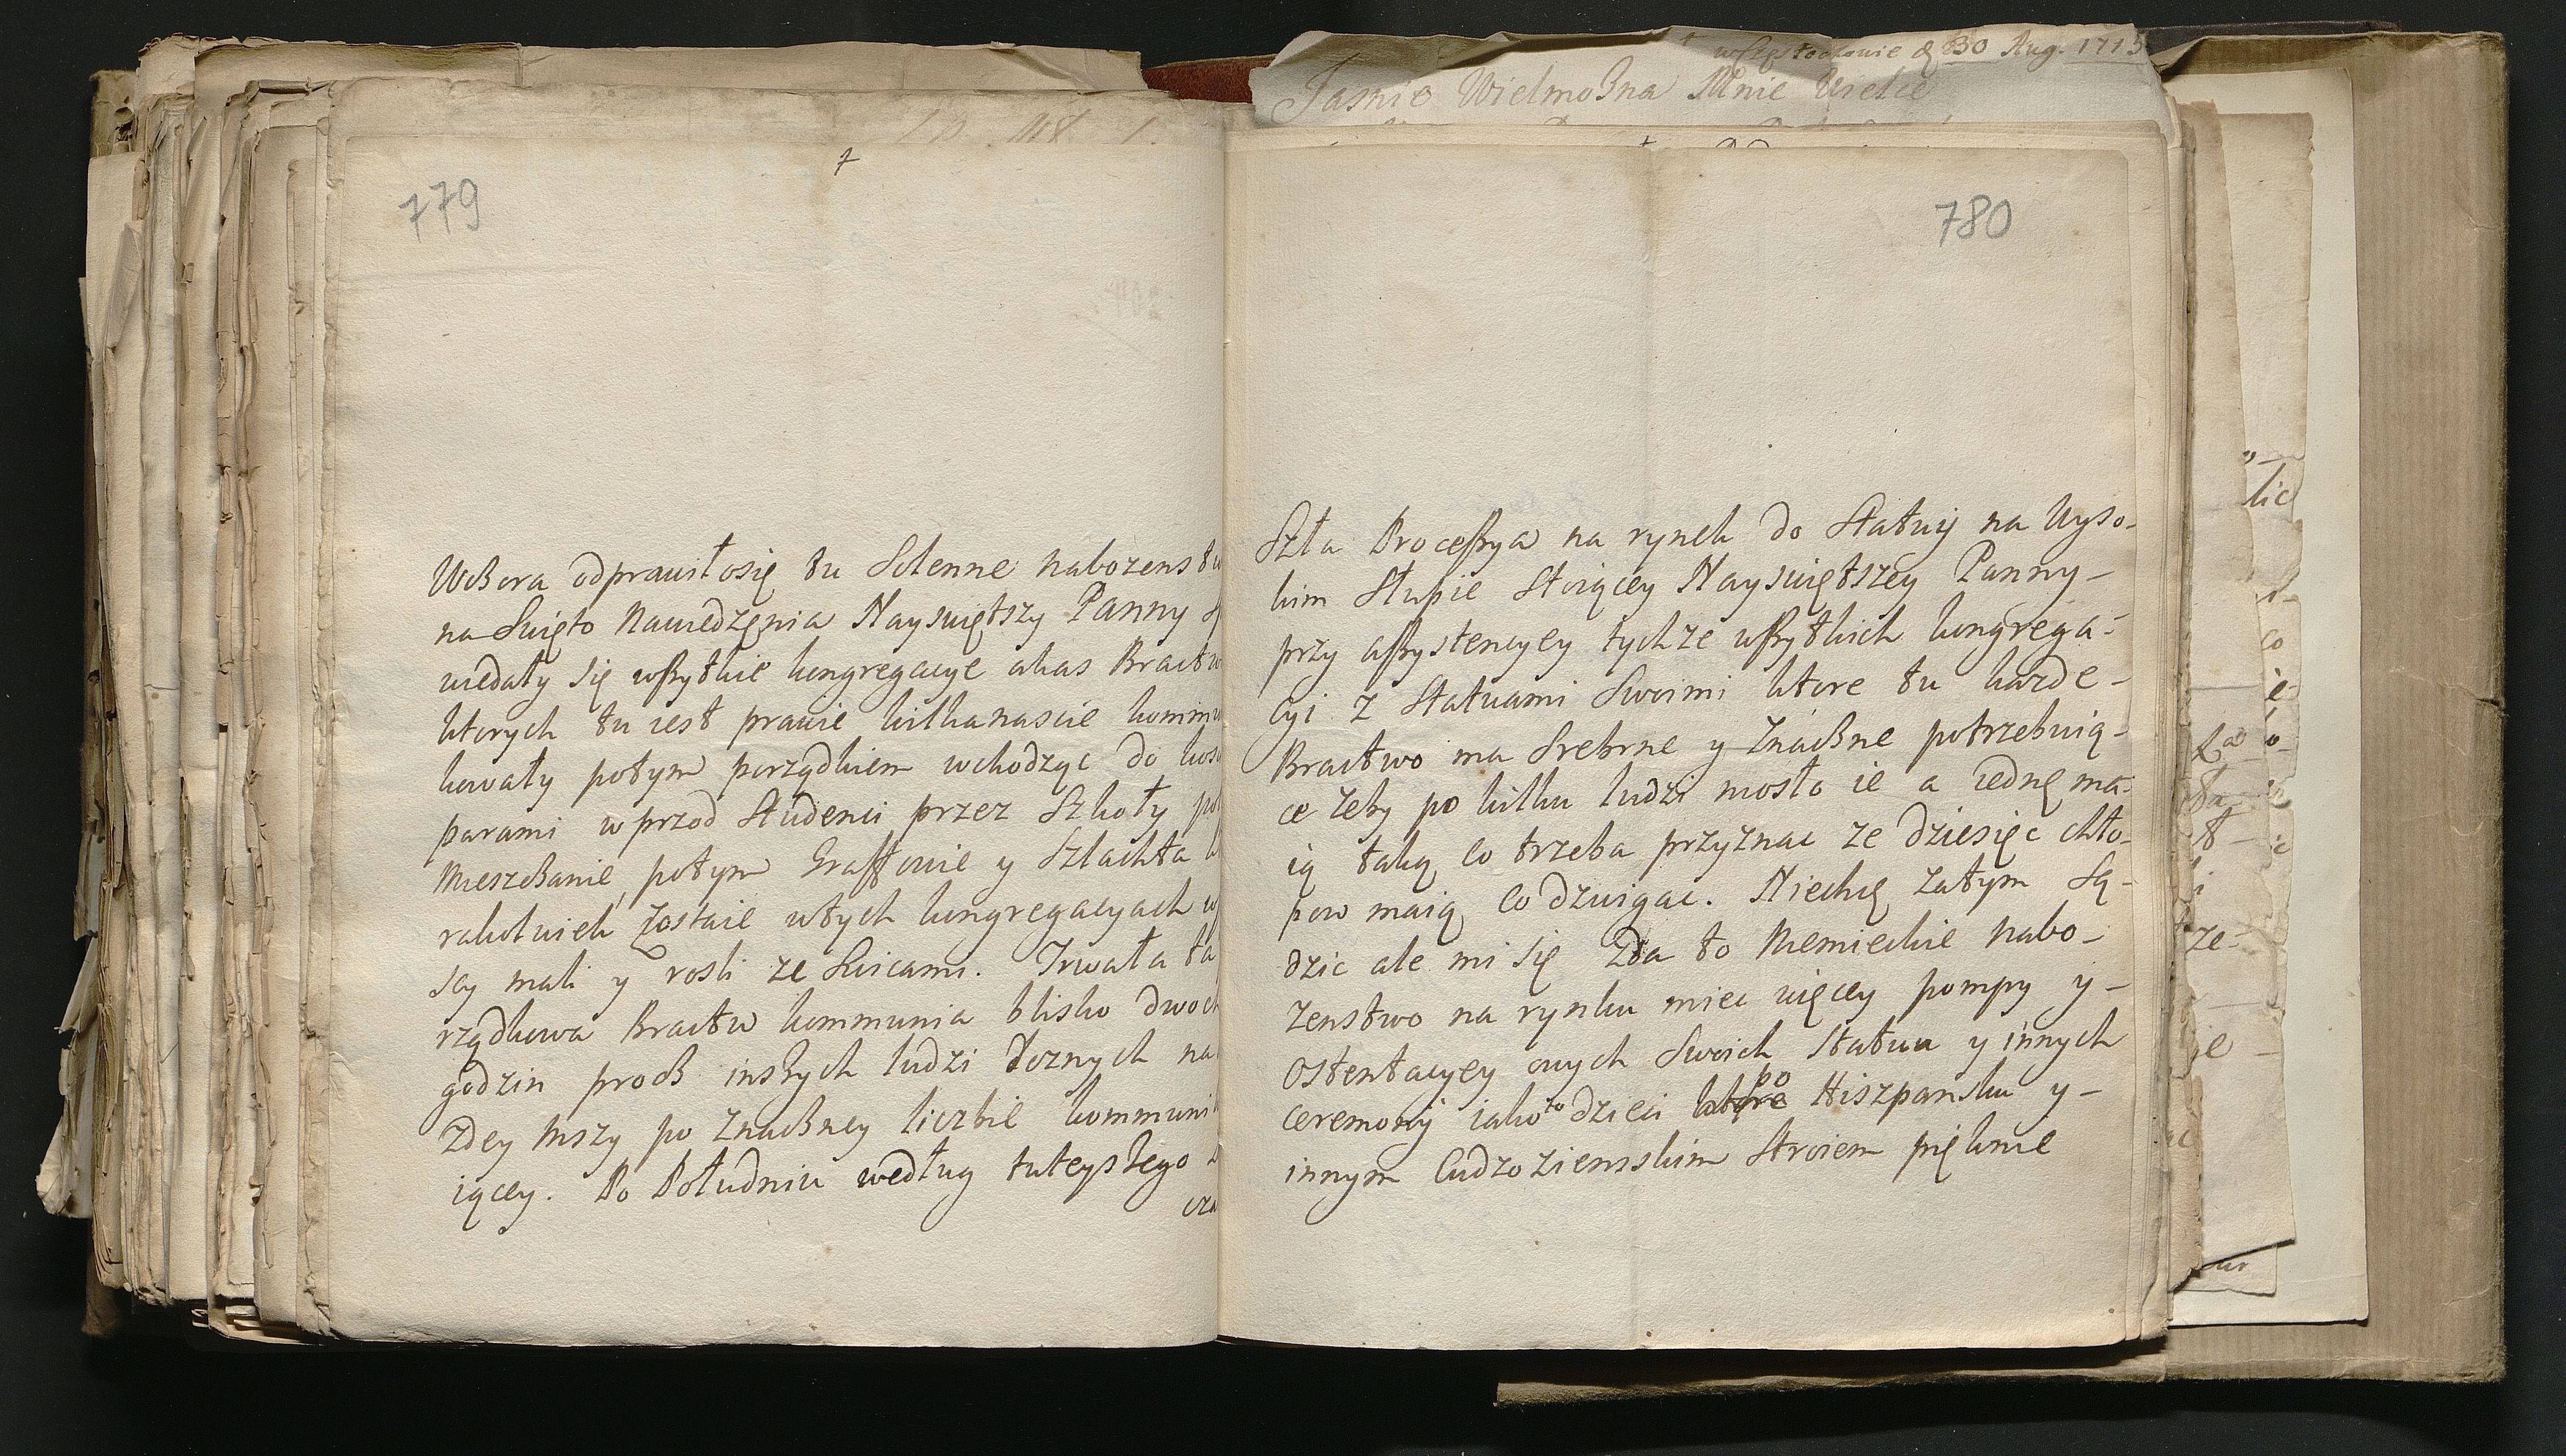 779
Wczora odprawiłosię tu Solenne nabozenstw
na Swięto Nawiedzęnia Nayswiętszy Panny
wiedały się wszytkie kongregacye alias Bractw
ktorych tu iest prawie kilkanascie kommu
kowały potym porządkiem wchodząc do kosc
parami wprzod Studenci przez Szkoły po
Mieszczanie, potym Graffowie y Szlachta
rakolwiek zostaie wtych kongregacyach w
scy mali y rosli ze swicami. Trwała ta
rządkowa Bractw kommunia blisko dwoch
godzin procz inszych ludzi roznych na
zdey Mszy po znaczney liczbie kommuni
iącey. Po Południu według tuteyszego
780
Szła Processya na rynek do Statuy na Wyso-
kim Słupie Stoiącey Nayswiętszey Panny-
przy assystencyey tychze wszytkich kongrega-
cyi z Statuami Swoimi ktore tu kazde-
Bractwo ma Srebrne y Znaczne potrzebuią-
ce zeby po kilku ludzi niosło ie a iednę ma-
ią taką co trzeba przyznac ze dziesięc chło-
pow maią co dzwigac. Niechcę zatym Są-
dzic ale mi się zda to Niemieckie nabo-
zenstwo na rynku miec więcey pompy y-
Ostentacyey onych Swoich Statua y innych
ceremonij iako to dzieci ktore po Hiszpansku y-
innym Cudzoziemskim Stroiem pięknie
w Częstochowie d 30 Aug. 1715
Jasnie Wielmozna Mnie Wielce